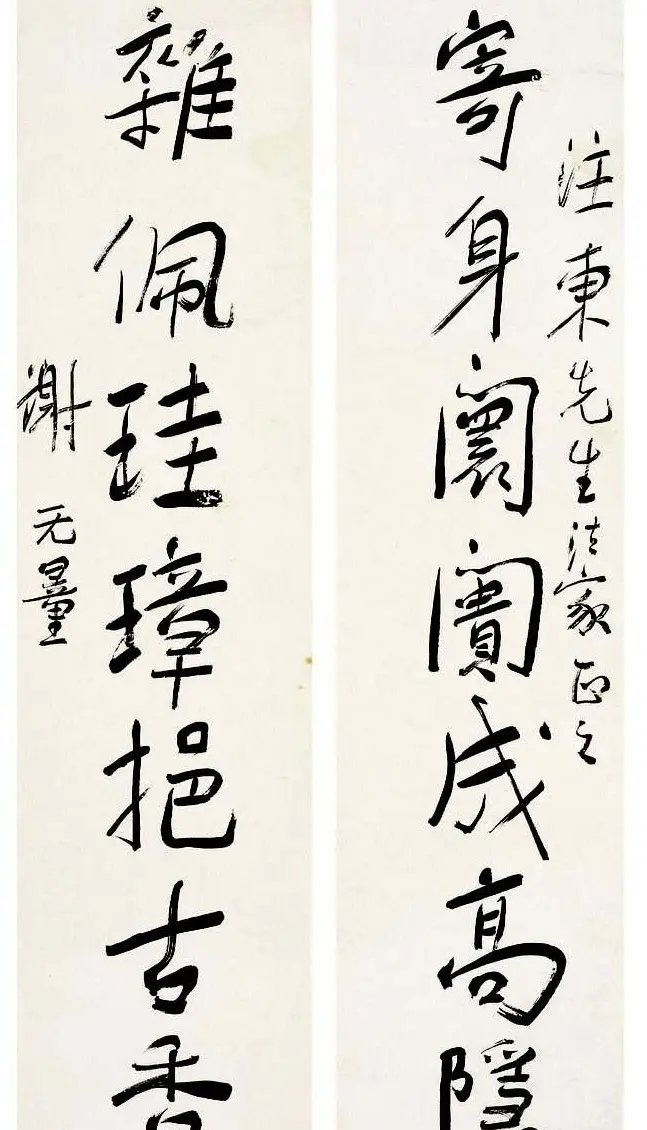 汪東先生法家正之
寄身闤闠成高隱
雜佩珪璋挹古香
謝无量